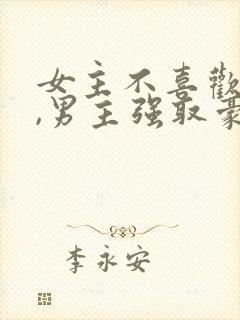 女主不喜歡
,男主强取豪
李永安